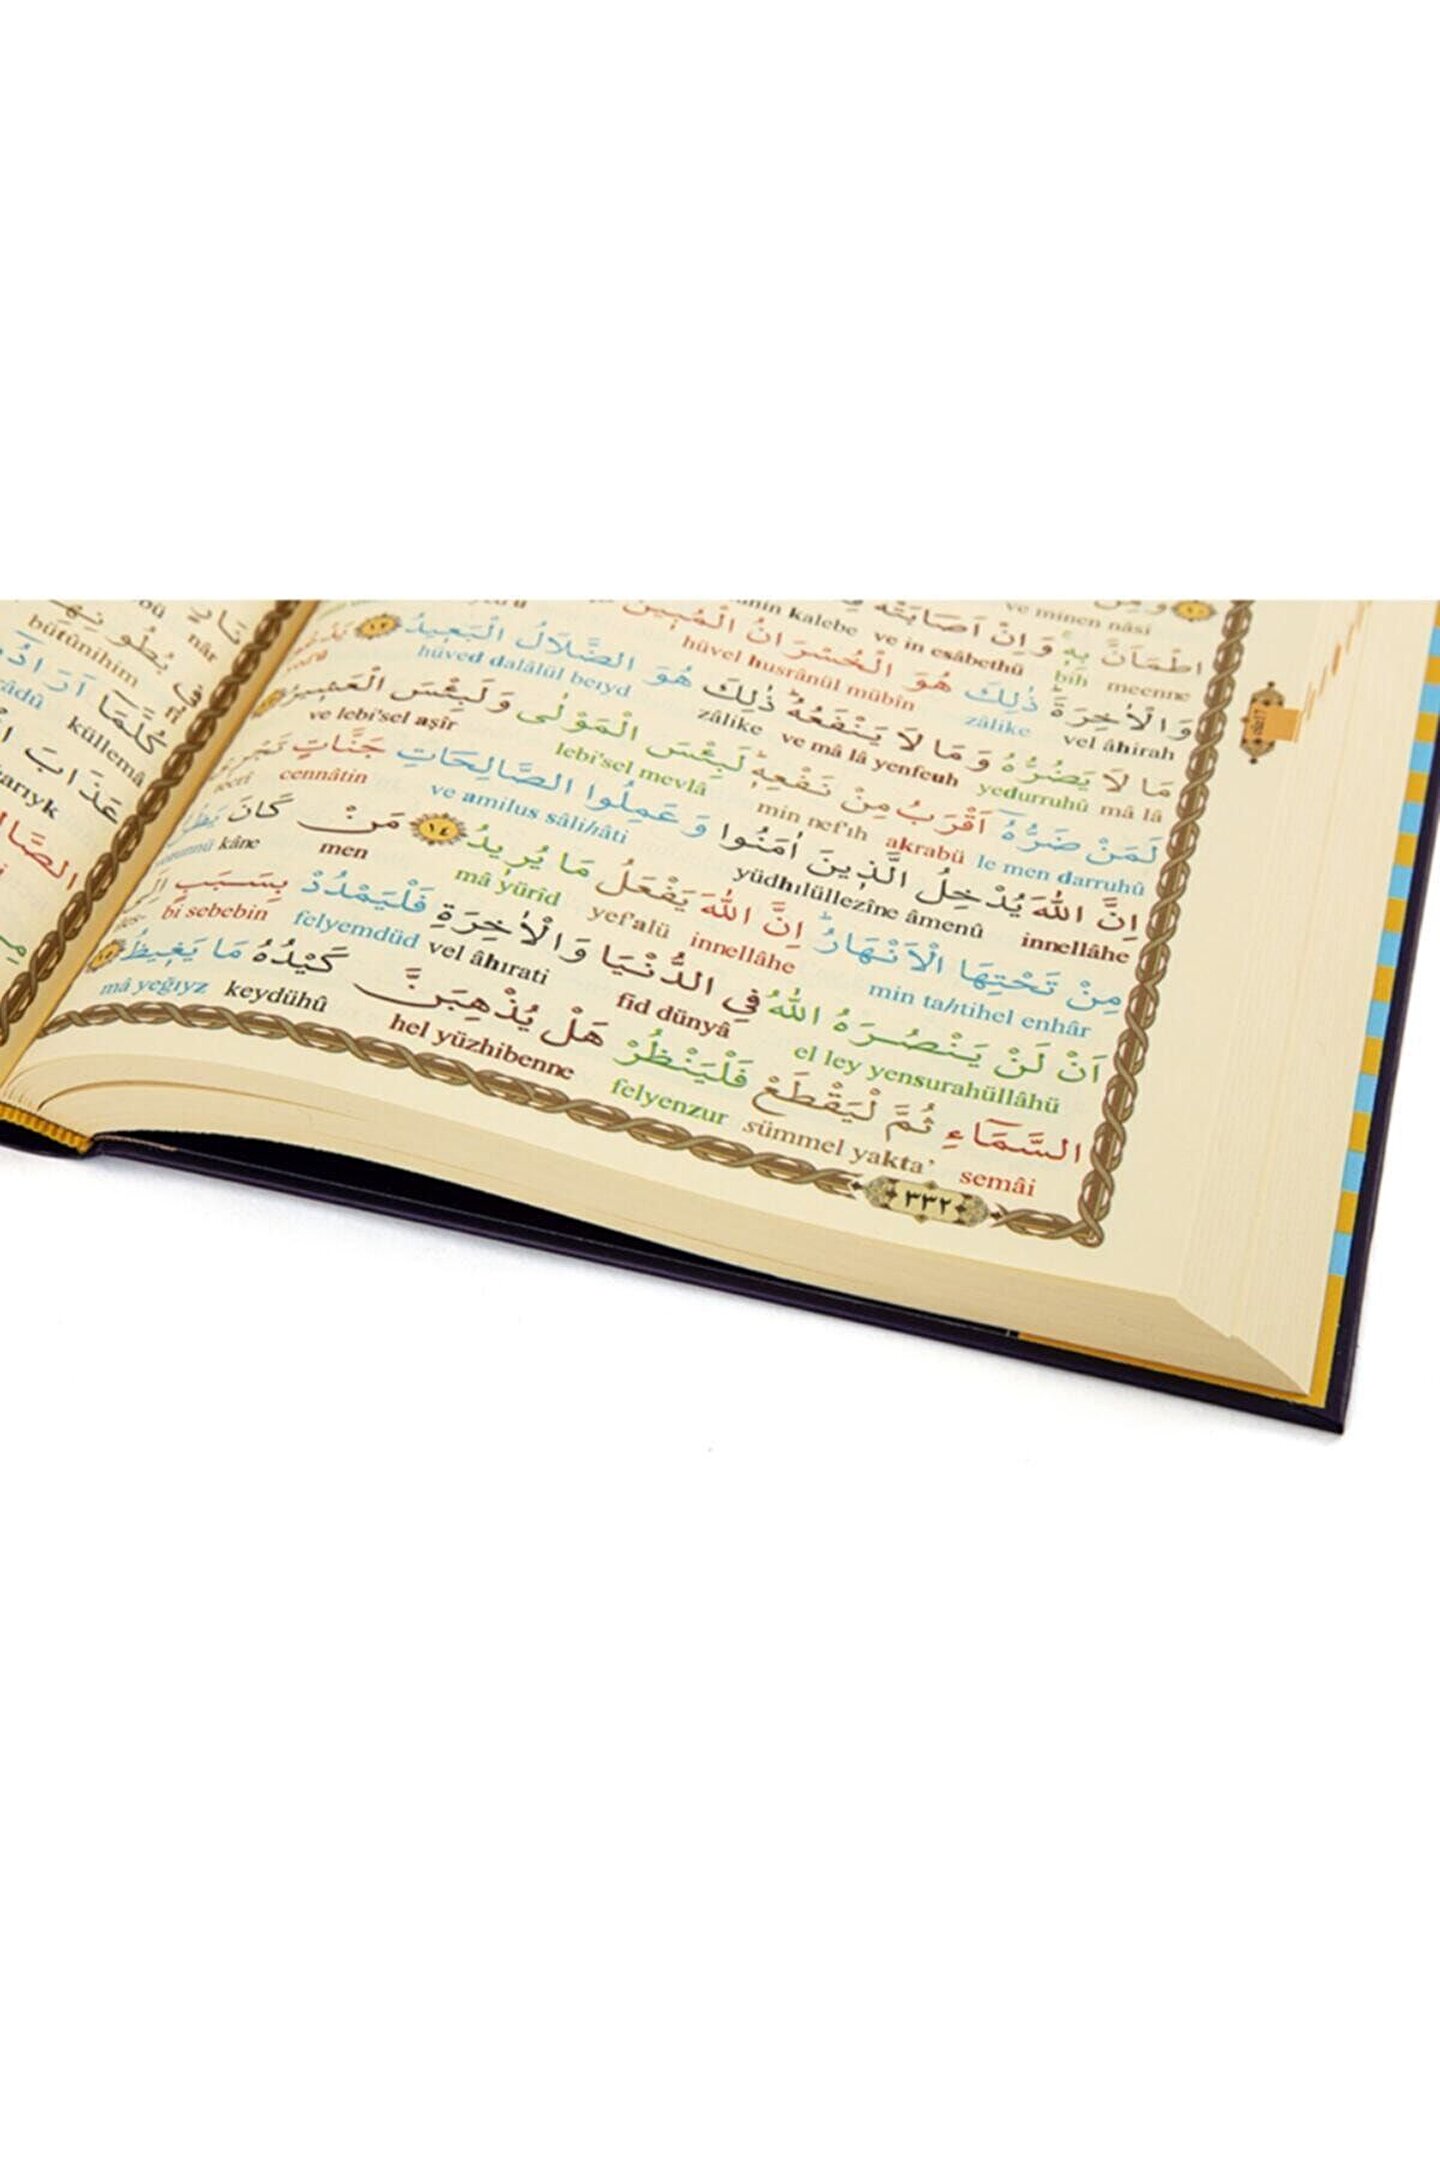 اِطْمَاَنَّ بِهٖ وَاِنْ اَصَابَتْهُ
ve minen nâsi
meenne bih ve in esâbethü kalebe
وَالْاٰخِرَةَ ذٰلِكَ هُوَ الْخُسْرَانُ الْمُبٖينُ
vel âhirah zâlike hüvel husrânül mübîn
مَا لَا يَضُرُّهُ وَمَا لَا يَنْفَعُهُ ذٰلِكَ هُوَ الضَّلَالُ الْبَعٖيدُ ١٢
mâ lâ yedurruhû ve mâ lâ yenfeuh zâlike hüved dalâlül beıyd
لَمَنْ ضَرُّهُ اَقْرَبُ مِنْ نَفْعِهٖ لَبِئْسَ الْمَوْلٰى وَلَبِئْسَ الْعَشٖيرُ
le men darruhû akrabü min nef'ıh lebi'sel mevlâ ve lebi'sel aşîr
اِنَّ اللّٰهَ يُدْخِلُ الَّذٖينَ اٰمَنُوا وَعَمِلُوا الصَّالِحَاتِ جَنَّاتٍ تَجْرٖى
innellâhe yüdhılüllezîne âmenû ve amilus sâlihâti cennâtin tecrî
مِنْ تَحْتِهَا الْاَنْهَارُ اِنَّ اللّٰهَ يَفْعَلُ مَا يُرٖيدُ ١٤ مَنْ كَانَ يَظُنُّ
min tahtihel enhâr innellâhe yef'alü mâ yürîd men kâne
اَنْ لَنْ يَنْصُرَهُ اللّٰهُ فِي الدُّنْيَا وَالْاٰخِرَةِ فَلْيَمْدُدْ بِسَبَبٍ
el ley yensurahüllâhü fid dünyâ vel âhırati felyemdüd bi sebebin
السَّمَاءِ ثُمَّ لْيَقْطَعْ فَلْيَنْظُرْ هَلْ يُذْهِبَنَّ كَيْدُهُ مَا يَغٖيظُ ١٥
semâi sümmel yakta' felyenzur hel yüzhibenne keydühû mâ yeğıyz
٣٣٢
بُطُونِهِمْ
nâr bütûnihim
كُلَّمَا اَرَادُوا
küllemâ
عَذَابَ